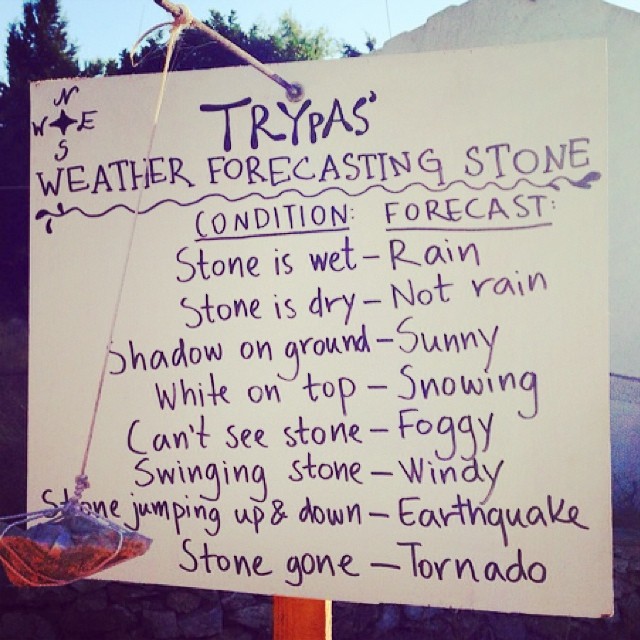 N
W E
S
TRYPAS'
WEATHER FORECASTING STONE
CONDITION: FORECAST:
Stone is wet – Rain
Stone is dry – Not rain
Shadow on ground – Sunny
White on top – Snowing
Can't see stone – Foggy
Swinging stone – Windy
Stone jumping up & down – Earthquake
Stone gone – Tornado